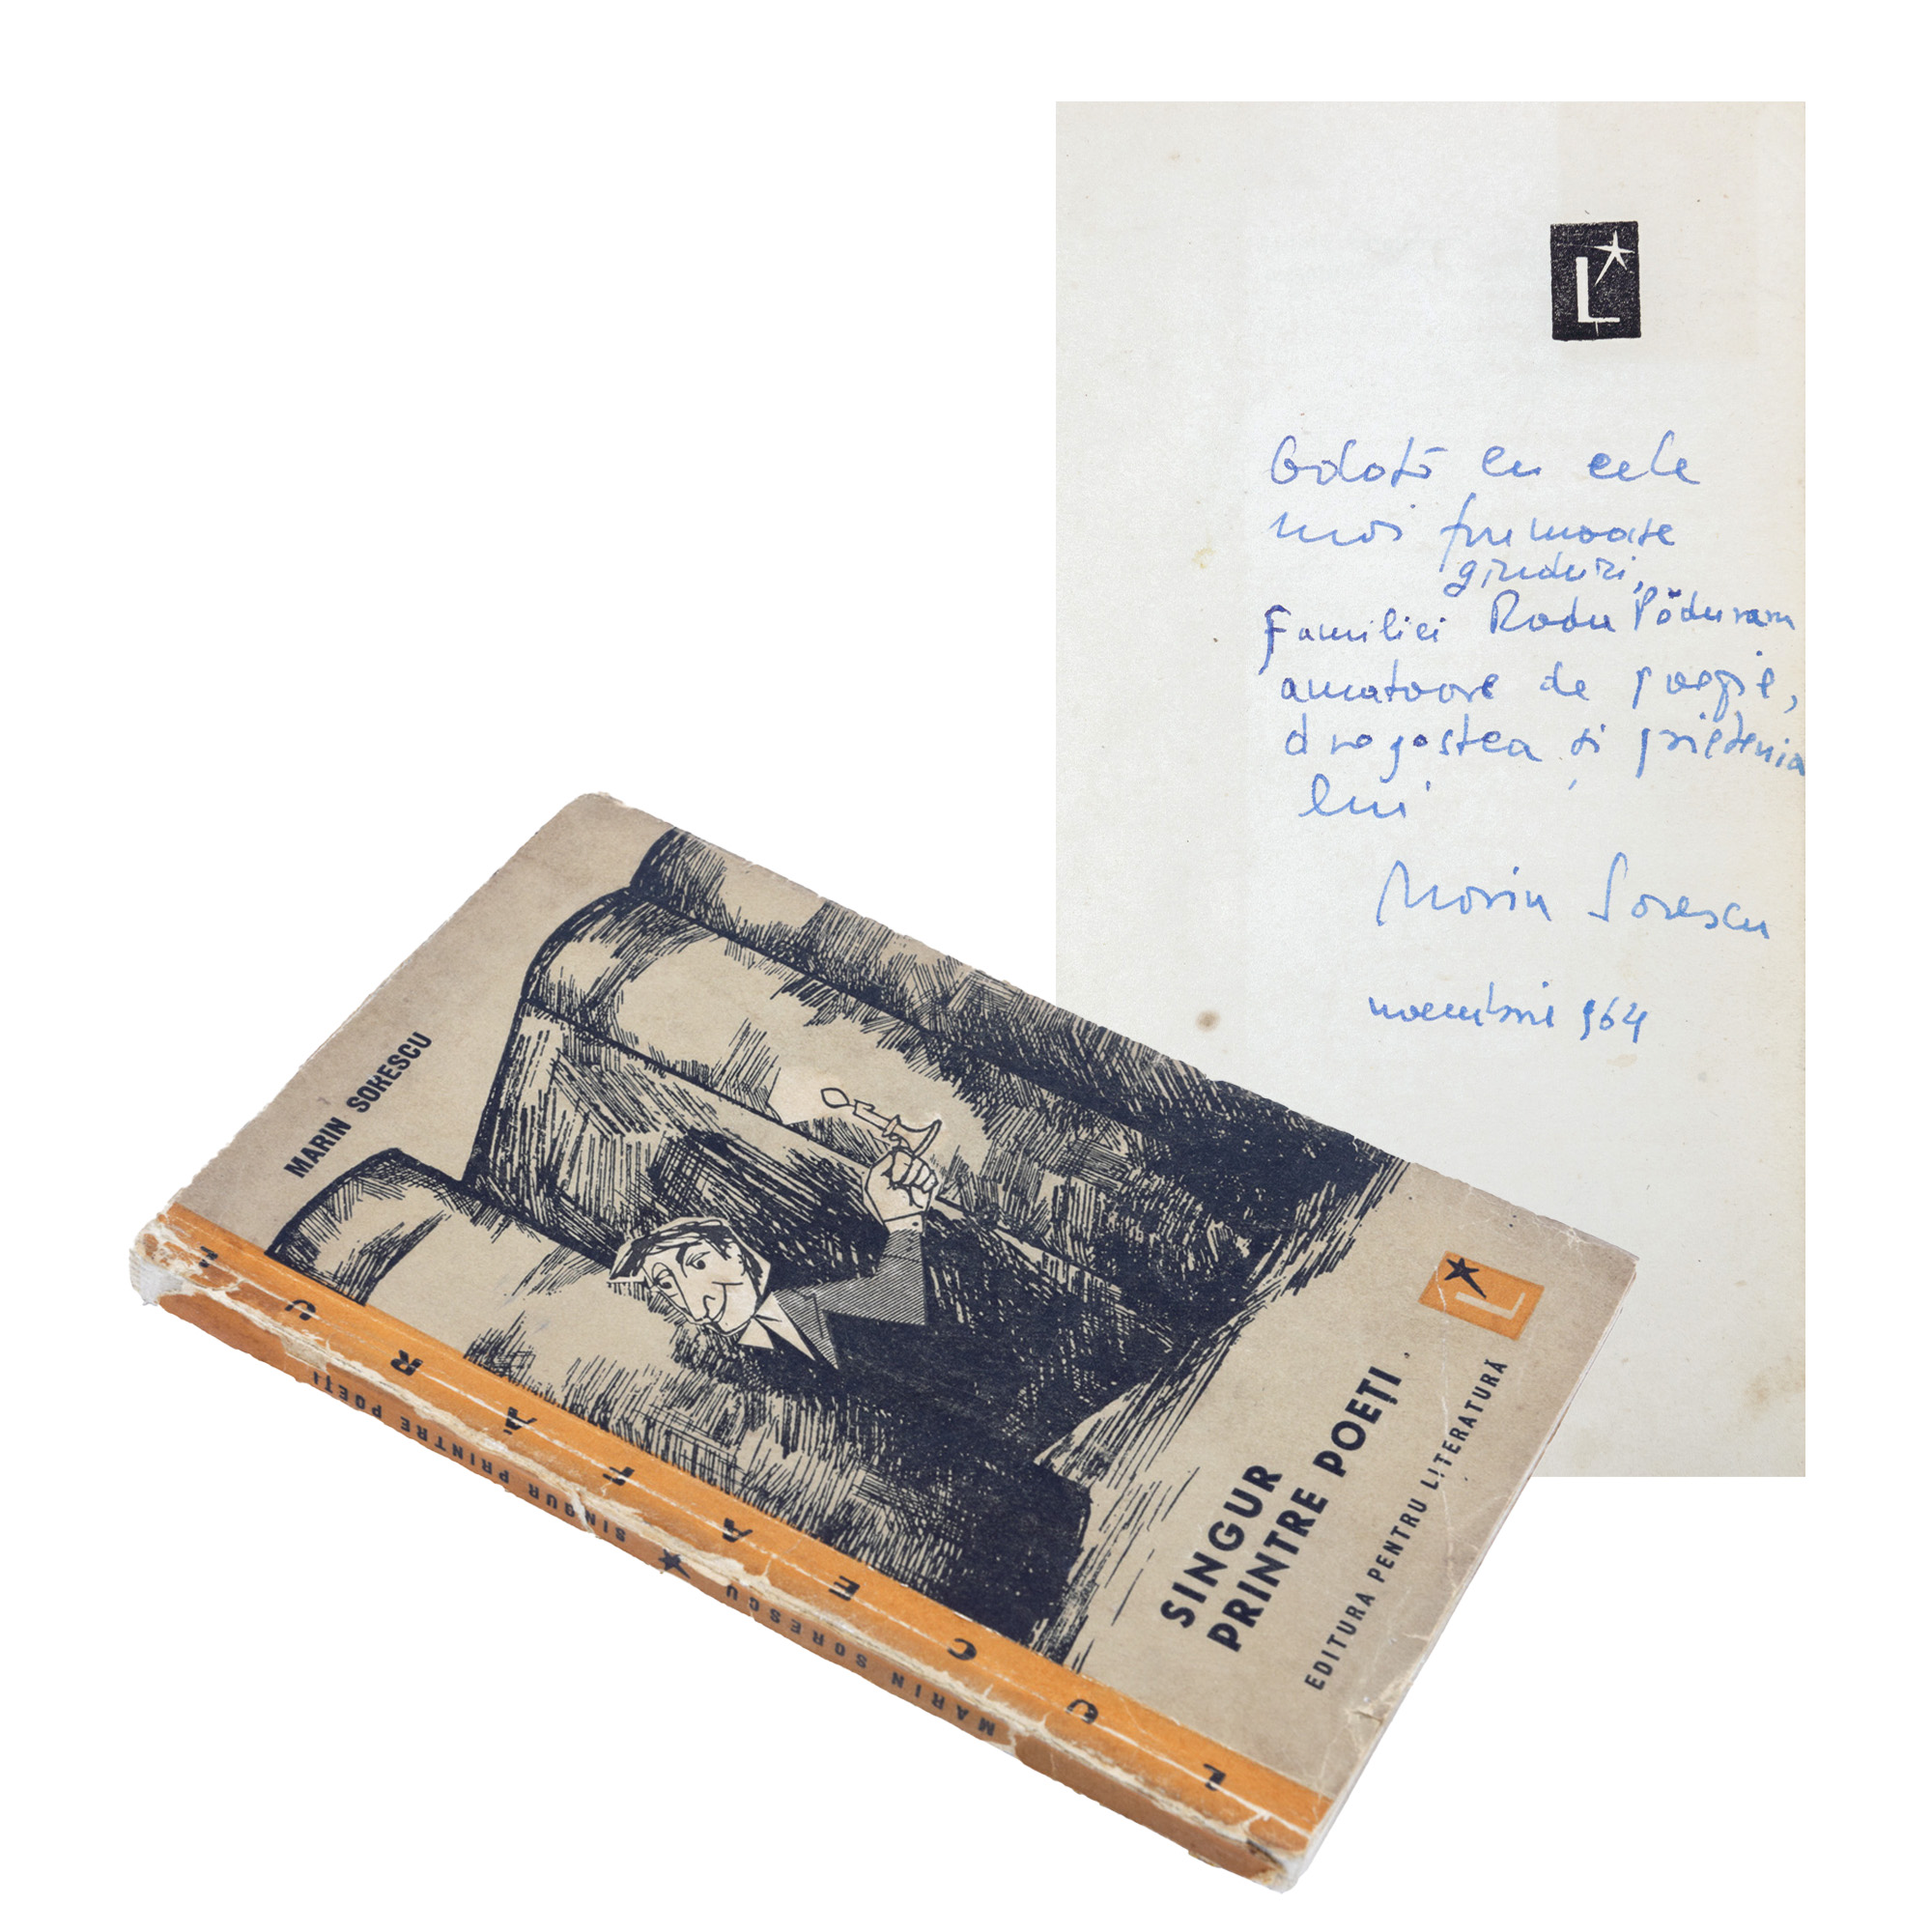 L
Odată cu cele
mai frumoase
gînduri,
Familiei Radu Păduraru
amatoare de poezie,
dragostea și prietenia
lui
Marin Sorescu
noembrie 964
MARIN SORESCU
SINGUR
PRINTRE POEȚI
EDITURA PENTRU LITERATURĂ
L
LUCEAFĂRUL
MARIN SORESCU ★ SINGUR PRINTRE POEȚI